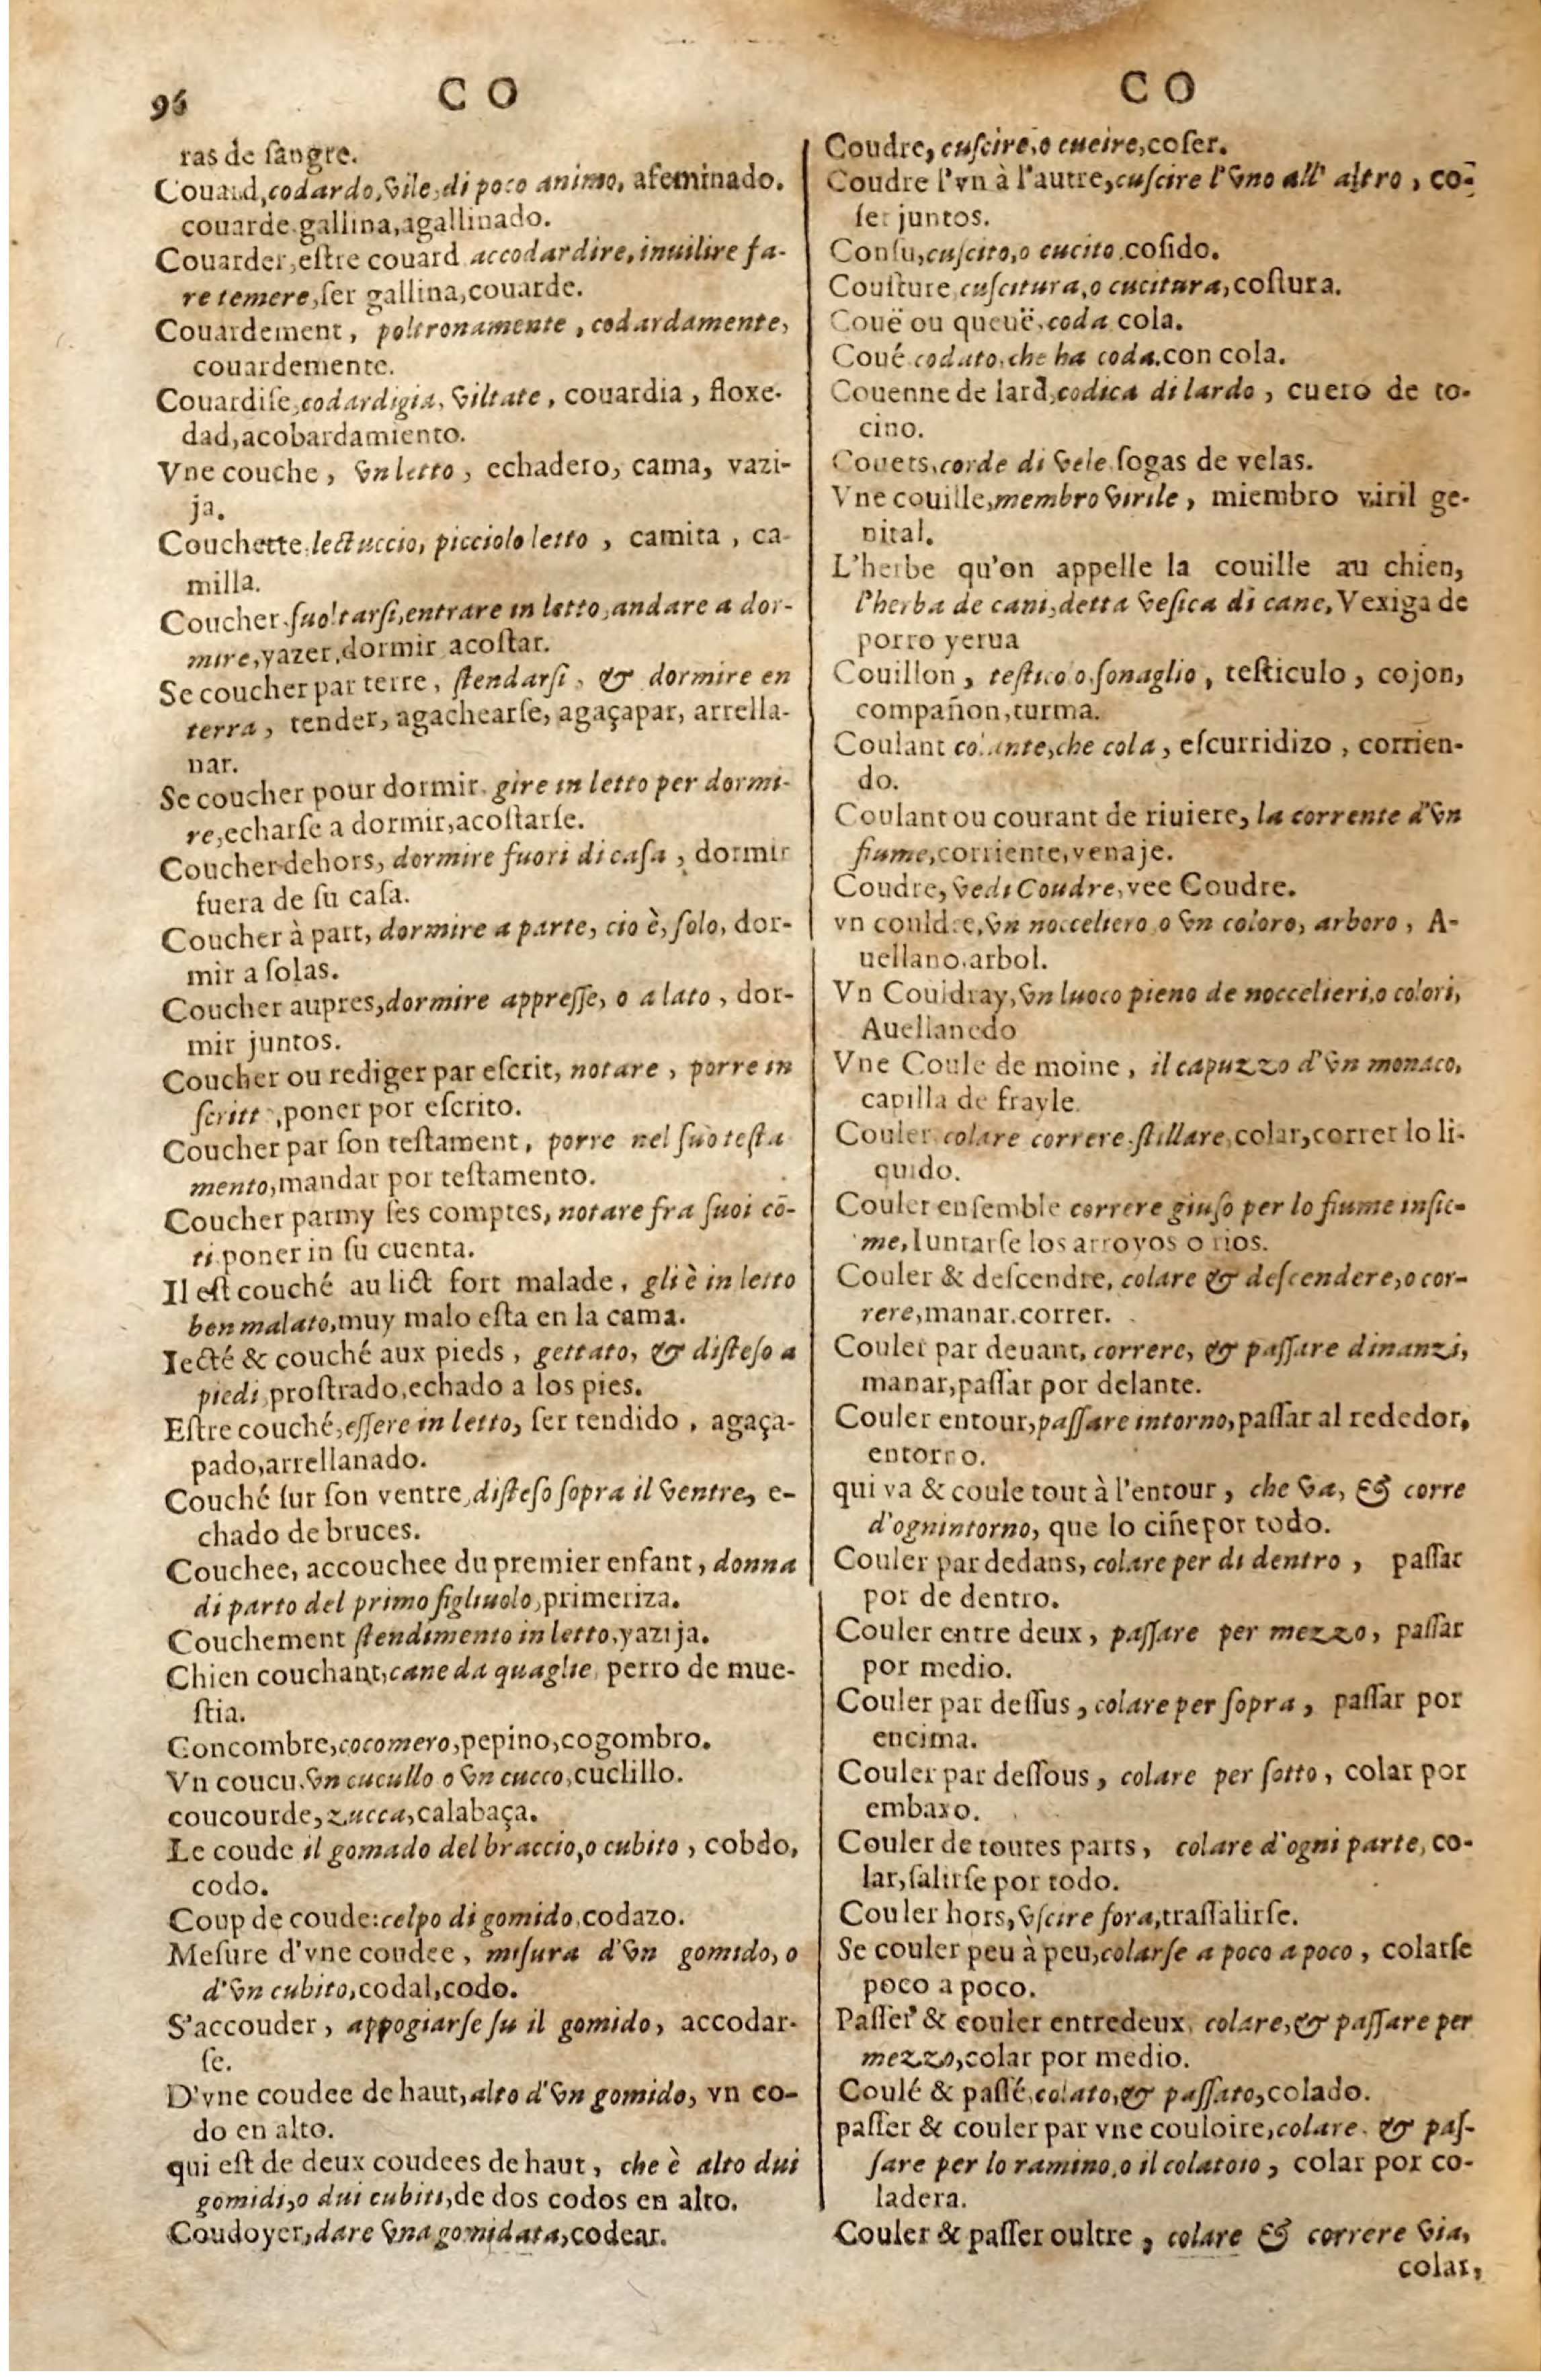 96
C O
C O
ras de ſangre.
Couard, codardo, vile, di poco animo, afeminado.
couarde. gallina, agallinado.
Couarder, eſtre couard accodardire, inuilire fa-
re temere, ſer gallina, couarde.
Couardement, poltronamente, codardamente,
couardemente.
Couardiſe, codardigia, viltate, couardia, floxe-
dad, acobardamiento.
Vne couche, vn letto, echadero, cama, vazi-
ja.
Couchette. lectuccio, picciolo letto, camita, ca-
milla.
Coucher. ſuoltarſi, entrare in letto, andare a dor-
mire, yazer, dormir acoſtar.
Se coucher par terre, ſtendarſi, & dormire en
terra, tender, agachearſe, agaçapar, arrella-
nar.
Se coucher pour dormir. gire in letto per dormi-
re, echarſe a dormir, acoſtarſe.
Coucher dehors, dormire fuori di caſa, dormir
fuera de ſu caſa.
Coucher à part, dormire a parte, cio è, ſolo, dor-
mir a ſolas.
Coucher aupres, dormire appreſſe, o a lato, dor-
mir juntos.
Coucher ou rediger par eſcrit, notare, porre in
ſcritt, poner por eſcrito.
Coucher par ſon teſtament, porre nel ſuo teſta
mento, mandar por teſtamento.
Coucher parmy ſes comptes, notare fra ſuoi cō-
ti poner in ſu cuenta.
Il eſt couché au lict fort malade, gli è in letto
ben malato, muy malo eſta en la cama.
Iecté & couché aux pieds, gettato, & diſteſo a
piedi, proſtrado, echado a los pies.
Eſtre couché, eſſere in letto, ſer tendido, agaça-
pado, arrellanado.
Couché ſur ſon ventre, diſteſo ſopra il ventre, e-
chado de bruces.
Couchee, accouchee du premier enfant, donna
di parto del primo figliuolo, primeriza.
Couchement ſtendimento in letto, yazija.
Chien couchant, cane da quaglie. perro de mue-
ſtia.
Concombre, cocomero, pepino, cogombro.
Vn coucu. vn cucullo o vn cucco, cuclillo.
coucourde, zucca, calabaça.
Le coude il gomado del braccio, o cubito, cobdo,
codo.
Coup de coude: celpo di gomido, codazo.
Meſure d'vne coudee, miſura d'vn gomido, o
d'vn cubito, codal, codo.
S'accouder, appogiarſe ſu il gomido, accodar-
ſe.
D'vne coudee de haut, alto d'vn gomido, vn co-
do en alto.
qui eſt de deux coudees de haut, che è alto dui
gomidi, o dui cubiti, de dos codos en alto.
Coudoyer, dare vna gomidata, codear.
Coudre, cuſcire, o cucire, coſer.
Coudre l'vn à l'autre, cuſcire l'vno all' altro, co-
ſer juntos.
Conſu, cuſcito, o cucito, coſido.
Couſture cuſcitura, o cucitura, coſtura.
Couë ou queuë, coda cola.
Coué codato, che ha coda. con cola.
Couenne de lard, codica di lardo, cuero de to-
cino.
Couets, corde di vele ſogas de velas.
Vne couille, membro virile, miembro viril ge-
nital.
L'herbe qu'on appelle la couille au chien,
l'herba de cani, detta veſica di cane, Vexiga de
porro yerua
Couillon, teſtico o ſonaglio, teſticulo, cojon,
compañon, turma.
Coulant colante, che cola, eſcurridizo, corrien-
do.
Coulant ou courant de riuiere, la corrente d'vn
fiume, corriente, venaje.
Coudre, vedi Coudre, vee Coudre.
vn couldre, vn nocceliero o vn coloro, arboro, A-
uellano. arbol.
Vn Couldray, vn luoco pieno de noccelieri, o colori,
Auellanedo
Vne Coule de moine, il capuzzo d'vn monaco,
capilla de frayle.
Couler. colare correre. ſtillare, colar, correr lo li-
quido.
Couler enſemble correre giuſo per lo fiume inſie-
me, Iuntarſe los arroyos o rios.
Couler & deſcendre, colare & deſcendere, o cor-
rere, manar. correr.
Couler par deuant, correre, & paſſare dinanzi,
manar, paſſar por delante.
Couler entour, paſſare intorno, paſſar al rededor,
entorno.
qui va & coule tout à l'entour, che va, & corre
d'ognintorno, que lo ciñe por todo.
Couler par dedans, colare per di dentro, paſſar
por de dentro.
Couler entre deux, paſſare per mezzo, paſſar
por medio.
Couler par deſſus, colare per ſopra, paſſar por
encima.
Couler par deſſous, colare per ſotto, colar por
embaxo.
Couler de toutes parts, colare d'ogni parte, co-
lar, ſalirſe por todo.
Couler hors, vſcire fora, traſſalirſe.
Se couler peu à peu, colarſe a poco a poco, colarſe
poco a poco.
Paſſer & couler entredeux, colare, & paſſare per
mezzo, colar por medio.
Coulé & paſſé, colato, & paſſato, colado.
paſſer & couler par vne couloire, colare. & paſ-
ſare per lo ramino, o il colatoio, colar por co-
ladera.
Couler & paſſer oultre, colare & correre via,
colar,